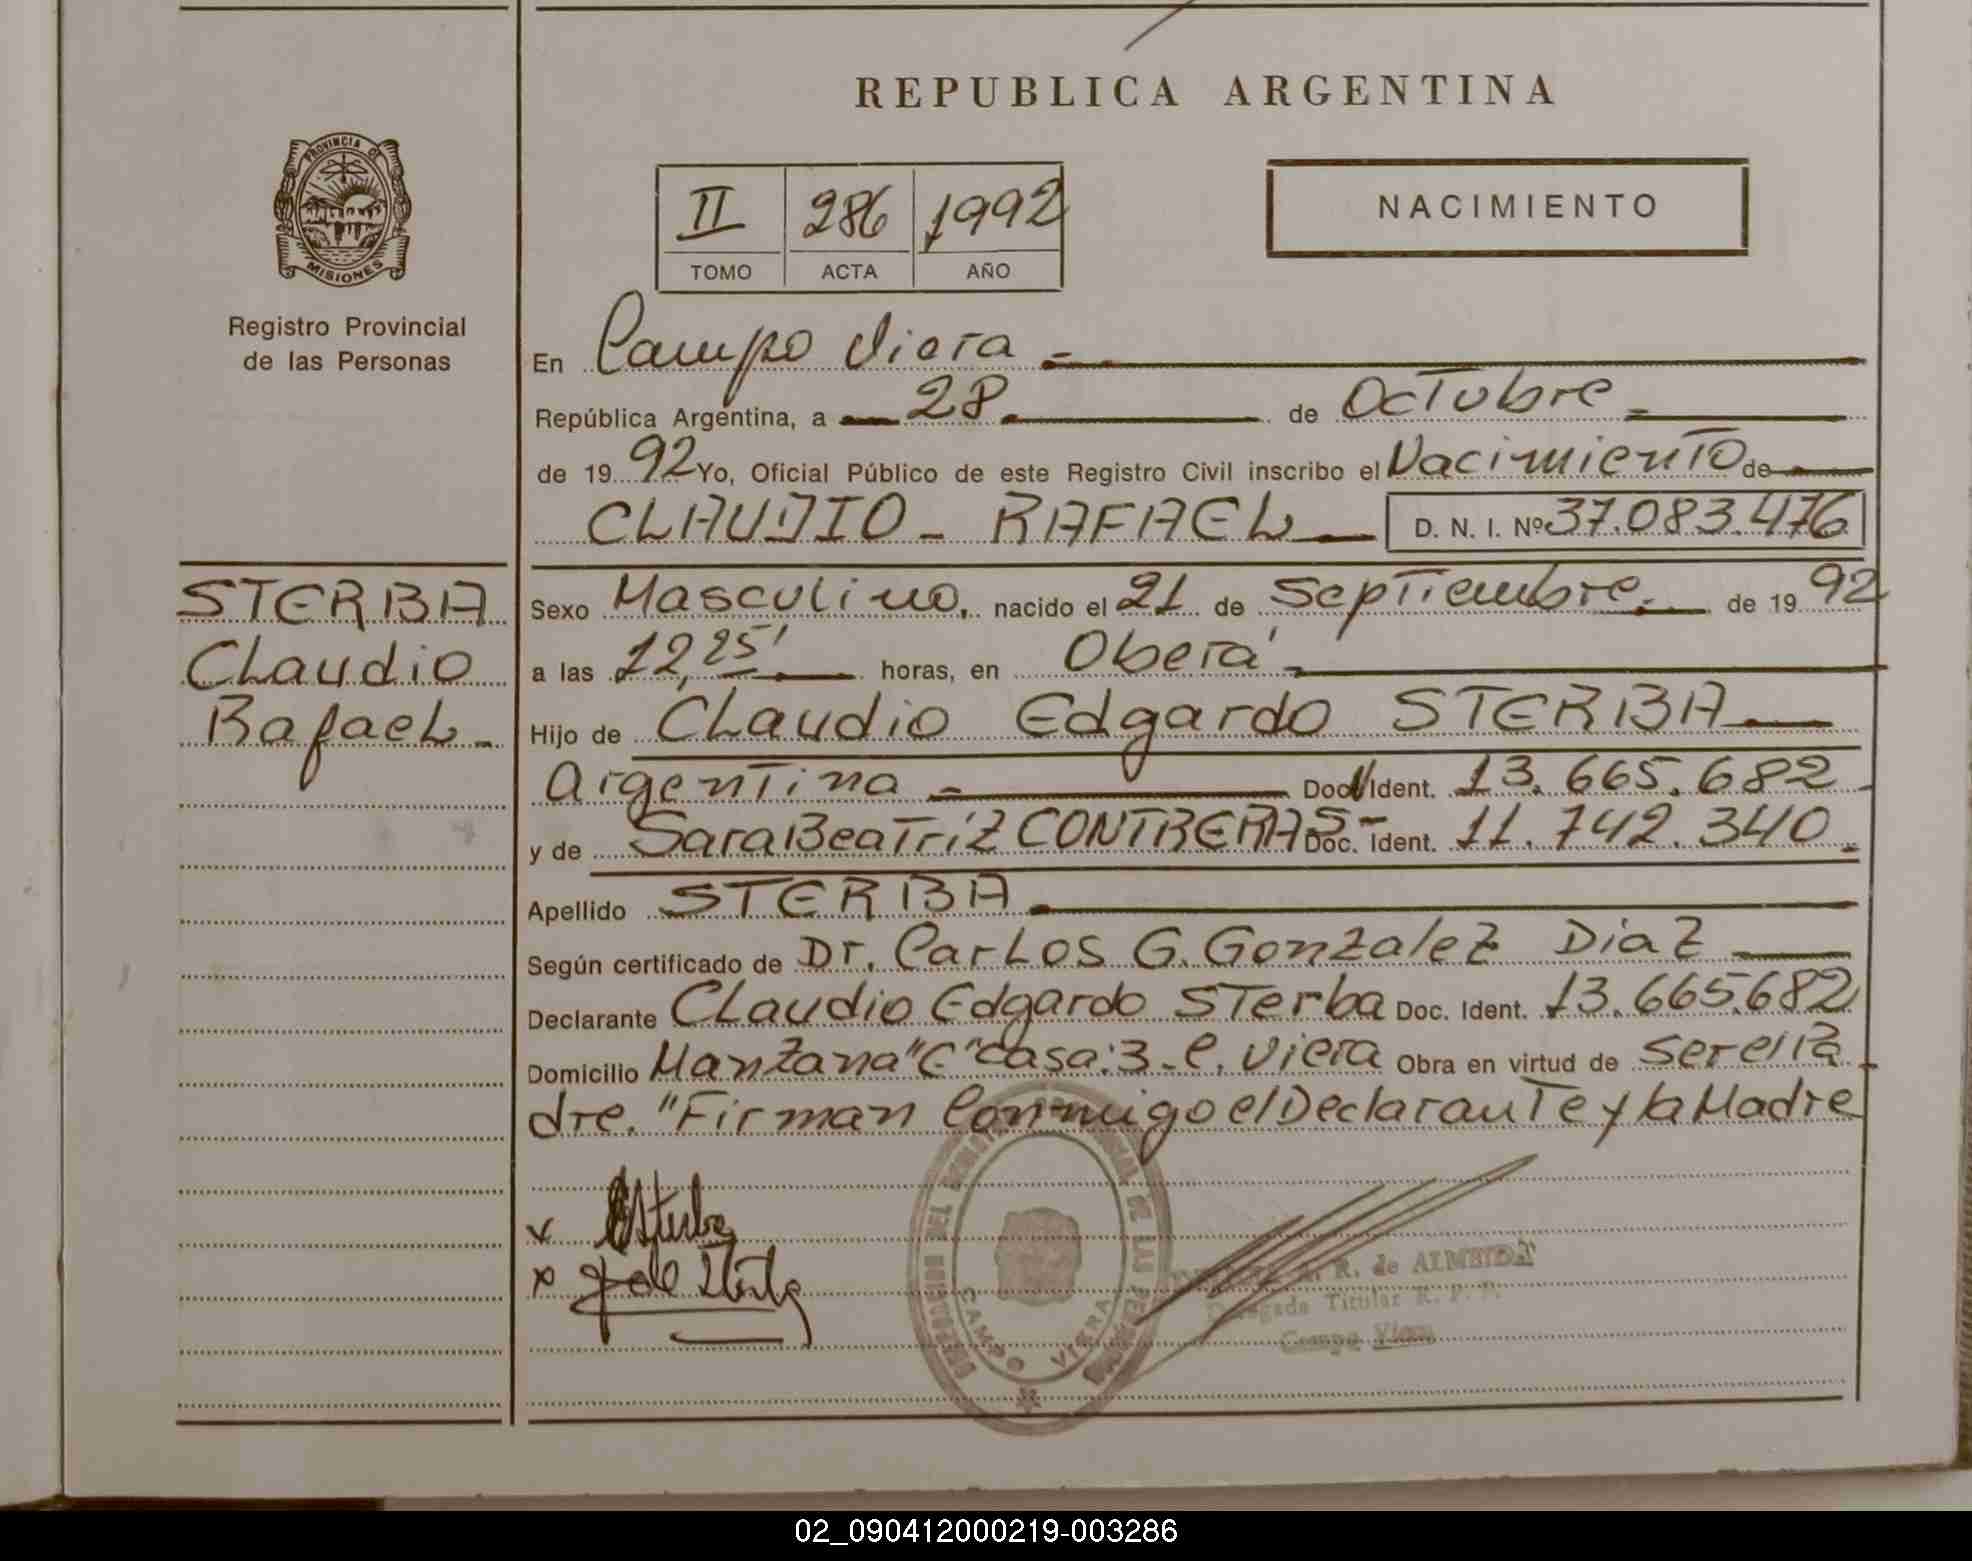 REPUBLICA ARGENTINA
PROVINCIA DE
MISIONES
Registro Provincial
de las Personas
II 286 1992
TOMO ACTA AÑO
NACIMIENTO
En Campo Viera
República Argentina, a 28 de Octubre
de 1992 Yo, Oficial Público de este Registro Civil inscribo el Nacimiento de
CLAUDIO - RAFAEL D. N. I. Nº 37.083.476
STERBA
Claudio
Rafael
Sexo Masculino, nacido el 21 de Septiembre de 1992
a las 12,25' horas, en Oberá
Hijo de Claudio Edgardo STERBA
Argentina Doc. Ident. 13.665.682
y de Sara Beatríz CONTRERAS - Doc. Ident. 11.742.340
Apellido STERBA
Según certificado de Dr. Carlos G. Gonzalez Diaz
Declarante Claudio Edgardo Sterba Doc. Ident. 13.665.682
Domicilio Manzana "C" casa: 3 - C. Viera Obra en virtud de ser el Pa
dre. "Firman Conmigo el Declarante y la Madre
x
x
CAMPO VIERA
R. de ALMEIDA
Delegada Titular R. P. P.
Campo Viera
02_090412000219-003286